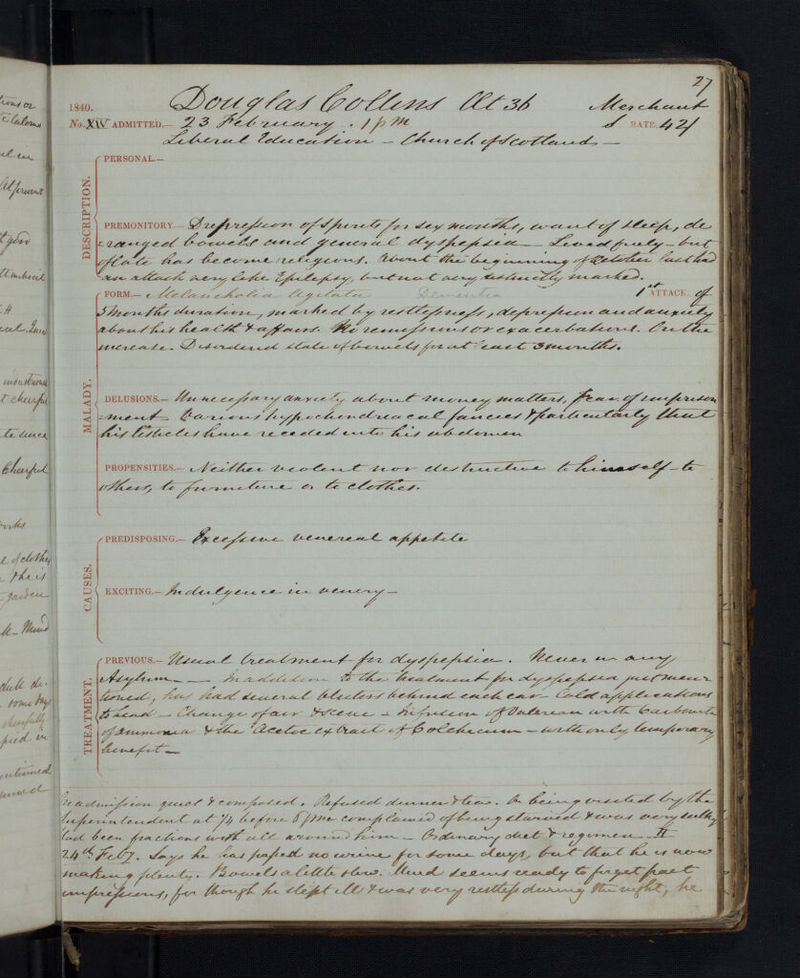 27
1840. Douglas Collins Æt 36 Merchant
No. XIV ADMITTED.— 23 February . 1 p m £ RATE. 42/
Liberal Education - Church of Scotland —
DESCRIPTION.
PERSONAL.—
PREMONITORY.— Depression of Spirits for six months, want of sleep, de
ranged bowels and general dyspepsia — Lived freely — but
of late has become religious. About the beginning of October last had
an attack very like Epilepsy, but not very distinctly marked.
MALADY.
FORM.— Melancholia Agitata Dementia 1st ATTACK. of
5 months duration, marked by restlessness, depression and anxiety
about his health & affairs. No remissions or exacerbations. On the
increase. Disordered state of bowels for at least 3 months.
DELUSIONS.— Unnecessary anxiety about money matters, fear of imprison
=ment Various hypochondriacal fancies & particularly that
his testicles have receded into his abdomen
PROPENSITIES.— Neither violent nor destructive to himself - to
others, to furniture or to clothes.
CAUSES.
PREDISPOSING.— Excessive venereal appetite
EXCITING.— Indulgence in venery —
TREATMENT.
PREVIOUS.— Usual treatment for dyspepsia . Never in any
Asylum — In addition to the treatment for dyspepsia just men
tioned, has had several blisters behind each ear - Cold applications
to head - Change of air & scene - Infusion of Valerian with Carbonate
of Ammonia & the Acetic extract of Colchicum - with only temporary
benefit —
On admission quiet & composed . Refused dinner & tea. On being visited by the
Superintendent at 1/4 before 8 P.M. complained of being starved & was very sulky
had been fractious with all around him — Ordinary diet & regimen
24th Feby. Says he has passed no urine for some days, but that he is now
making plenty. Bowels a little slow. Mind seems ready to forget past
impressions, for though he slept ill & was very restless during the night, he